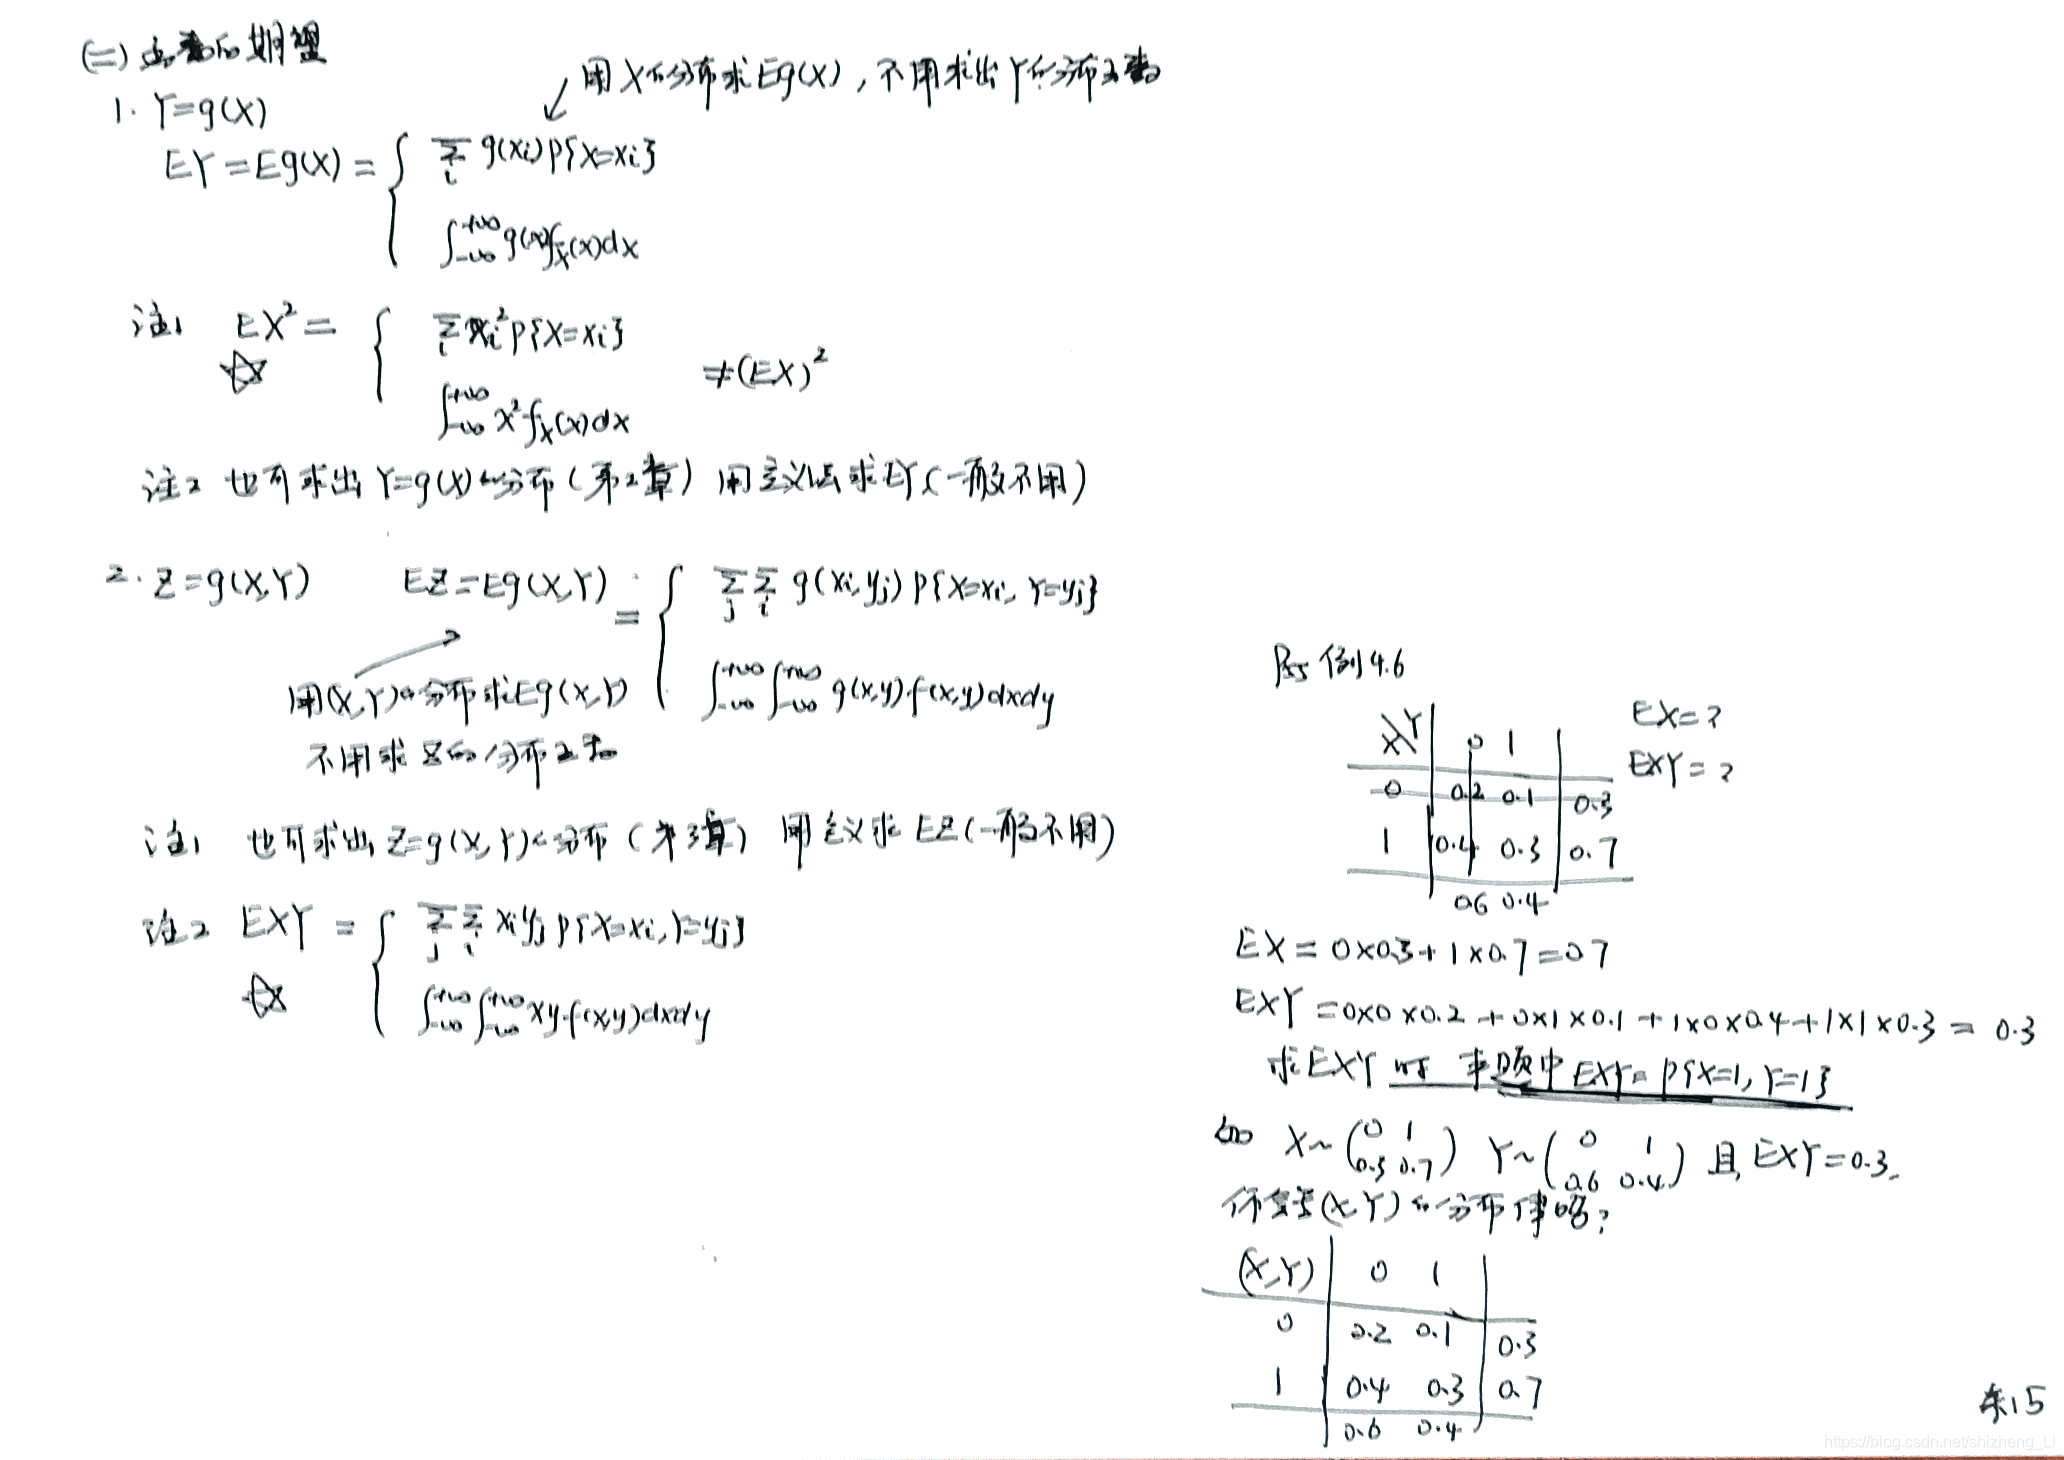 (二) 函数的期望
用X的分布求Eg(X), 不用求出Y的分布函数
1. Y=g(X)
EY=Eg(X)= { Σ_i g(xi)P{X=xi}
∫_{-∞}^{+∞} g(x)f_X(x)dx
注1 EX²= { Σ_i xi²P{X=xi}
☆ ≠(EX)²
∫_{-∞}^{+∞} x²f_X(x)dx
注2 也可求出Y=g(X)的分布(第2章) 用定义法求EY(一般不用)
2. Z=g(X,Y) EZ=Eg(X,Y) = { Σ_j Σ_i g(xi,yj)P{X=xi, Y=yj}
∫_{-∞}^{+∞}∫_{-∞}^{+∞} g(x,y)f(x,y)dxdy
用(X,Y)的分布求Eg(X,Y)
不用求Z的分布
注1 也可求出Z=g(X,Y)的分布(第3章) 用定义求EZ(一般不用)
注2 EXY = { Σ_j Σ_i xiyjP{X=xi, Y=yj}
☆
∫_{-∞}^{+∞}∫_{-∞}^{+∞} xyf(x,y)dxdy
例4.6
X\Y 0 1
EX=?
EXY=?
0 0.2 0.1 0.3
1 0.4 0.3 0.7
0.6 0.4
EX=0×0.3+1×0.7=0.7
EXY=0×0×0.2+0×1×0.1+1×0×0.4+1×1×0.3=0.3
求EXY时 本题中EXY=P{X=1, Y=1}
如 X~(0 1
0.3 0.7) Y~(0 1
0.6 0.4) 且EXY=0.3
你会写(X,Y)的分布律吗?
(X,Y) 0 1
0 0.2 0.1 0.3
1 0.4 0.3 0.7
0.6 0.4
15
https://blog.csdn.net/shizheng_Li